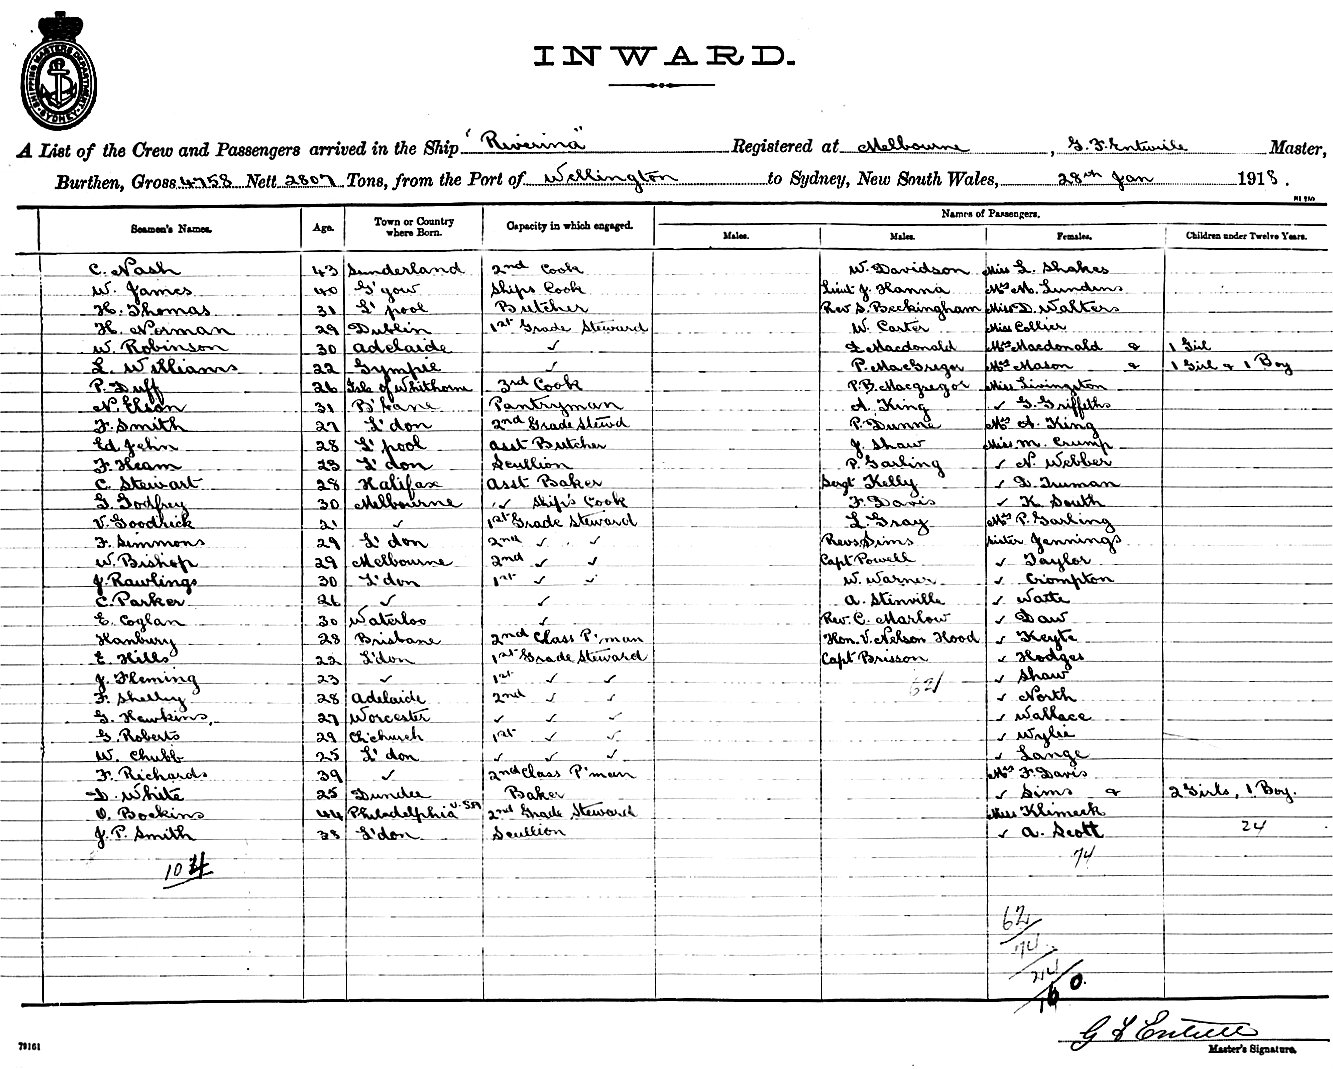 SHIPPING MASTERS DEPARTMENT SYDNEY
INWARD.
A List of the Crew and Passengers arrived in the Ship "Riverina" Registered at Melbourne, G. F. Entwile Master,
Burthen, Gross 4758 Nett 2807 Tons, from the Port of Wellington to Sydney, New South Wales, 28th Jan 1918.
Seamen's Names. Age. Town or Country where Born. Capacity in which engaged. Names of Passengers.
Males. Males. Females. Children under Twelve Years.
C. Nash 43 Sunderland 2nd Cook W. Davidson Miss L. Shakes
W. James 40 G'gow Ships Cook Lieut J. Hanna Mrs M. Lundins
H. Thomas 31 L'pool Butcher Rev S. Beckingham Miss D. Walters
H. Norman 29 Dublin 1st Grade Steward W. Carter Miss Collier
W. Robinson 30 Adelaide ✓ D Macdonald Mrs Macdonald & 1 Girl
L. Williams 22 Gympie ✓ P. MacGregor Mrs Mason & 1 Girl & 1 Boy
P. Duff 26 Isle of Whithorne 3rd Cook P.B. Macgregor Miss Livingston
N. Elson 31 B'bane Pantryman A. King ✓ G. Griffiths
F. Smith 27 L'don 2nd Grade Stewd P. Dunne Mrs A. King
Ed Jehn 28 L'pool Asst Butcher J. Shaw Miss M. Crump
F. Heam 23 L'don Scullion P. Garling ✓ N. Webber
C. Stewart 28 Halifax Asst Baker Sergt Kelly ✓ D. Truman
G. Godfrey 30 Melbourne ✓ Ship's Cook F. Davis ✓ K. South
V. Goodrick 21 ✓ 1st Grade Steward L. Gray Mrs P. Garling
F. Simmons 29 L'don 2nd ✓ ✓ Rev Sims Sister Jennings
W. Bishop 29 Melbourne 2nd ✓ ✓ Capt Powell ✓ Taylor
J. Rawlings 30 L'don 1st ✓ ✓ W. Warner ✓ Crompton
C. Parker 26 ✓ ✓ A. Stenville ✓ Watte
E. Coglan 30 Waterloo ✓ Rev. C. Marlow ✓ Daw
Hanbury 28 Brisbane 2nd Class P'man Hon. V. Nelson Hood ✓ Keyte
E. Hills 22 L'don 1st Grade Steward Capt Brisson ✓ Hodges
J. Fleming 23 ✓ 1st ✓ ✓ 62 ✓ Shaw
F. Shelley 28 Adelaide 2nd ✓ ✓ ✓ North
G. Hawkins. 27 Worcester ✓ ✓ ✓ ✓ Wallace
G. Roberts 29 Ch'church 1st ✓ ✓ ✓ Wylie
W. Chubb 25 L'don ✓ ✓ ✓ ✓ Lange
F. Richards 39 ✓ 2nd Class P'man Mrs F. Davis
D. White 25 Dundee Baker ✓ Sims & 2 Girls, 1 Boy.
O. Bockins 44 Philadelphia U.SA 2nd Grade Steward Miss Klimeck
J. P. Smith 38 L'don Scullion ✓ A. Scott 24
104 74
62
74
24
160.
G F Entwile
Master's Signature.
79161